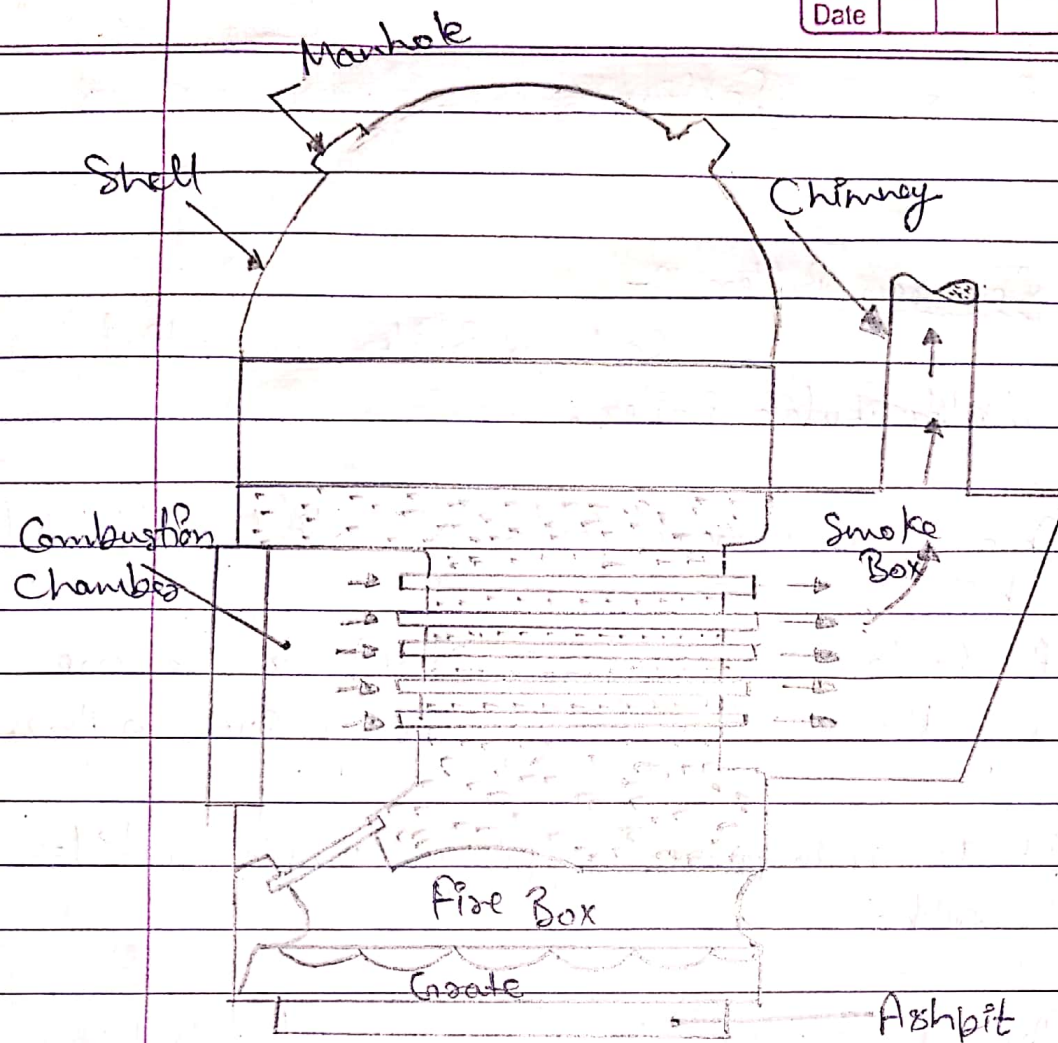 Date
Manhole
Shell
Chimney
Combustion
Chamber
Smoke
Box
Fire Box
Grate
Ashpit